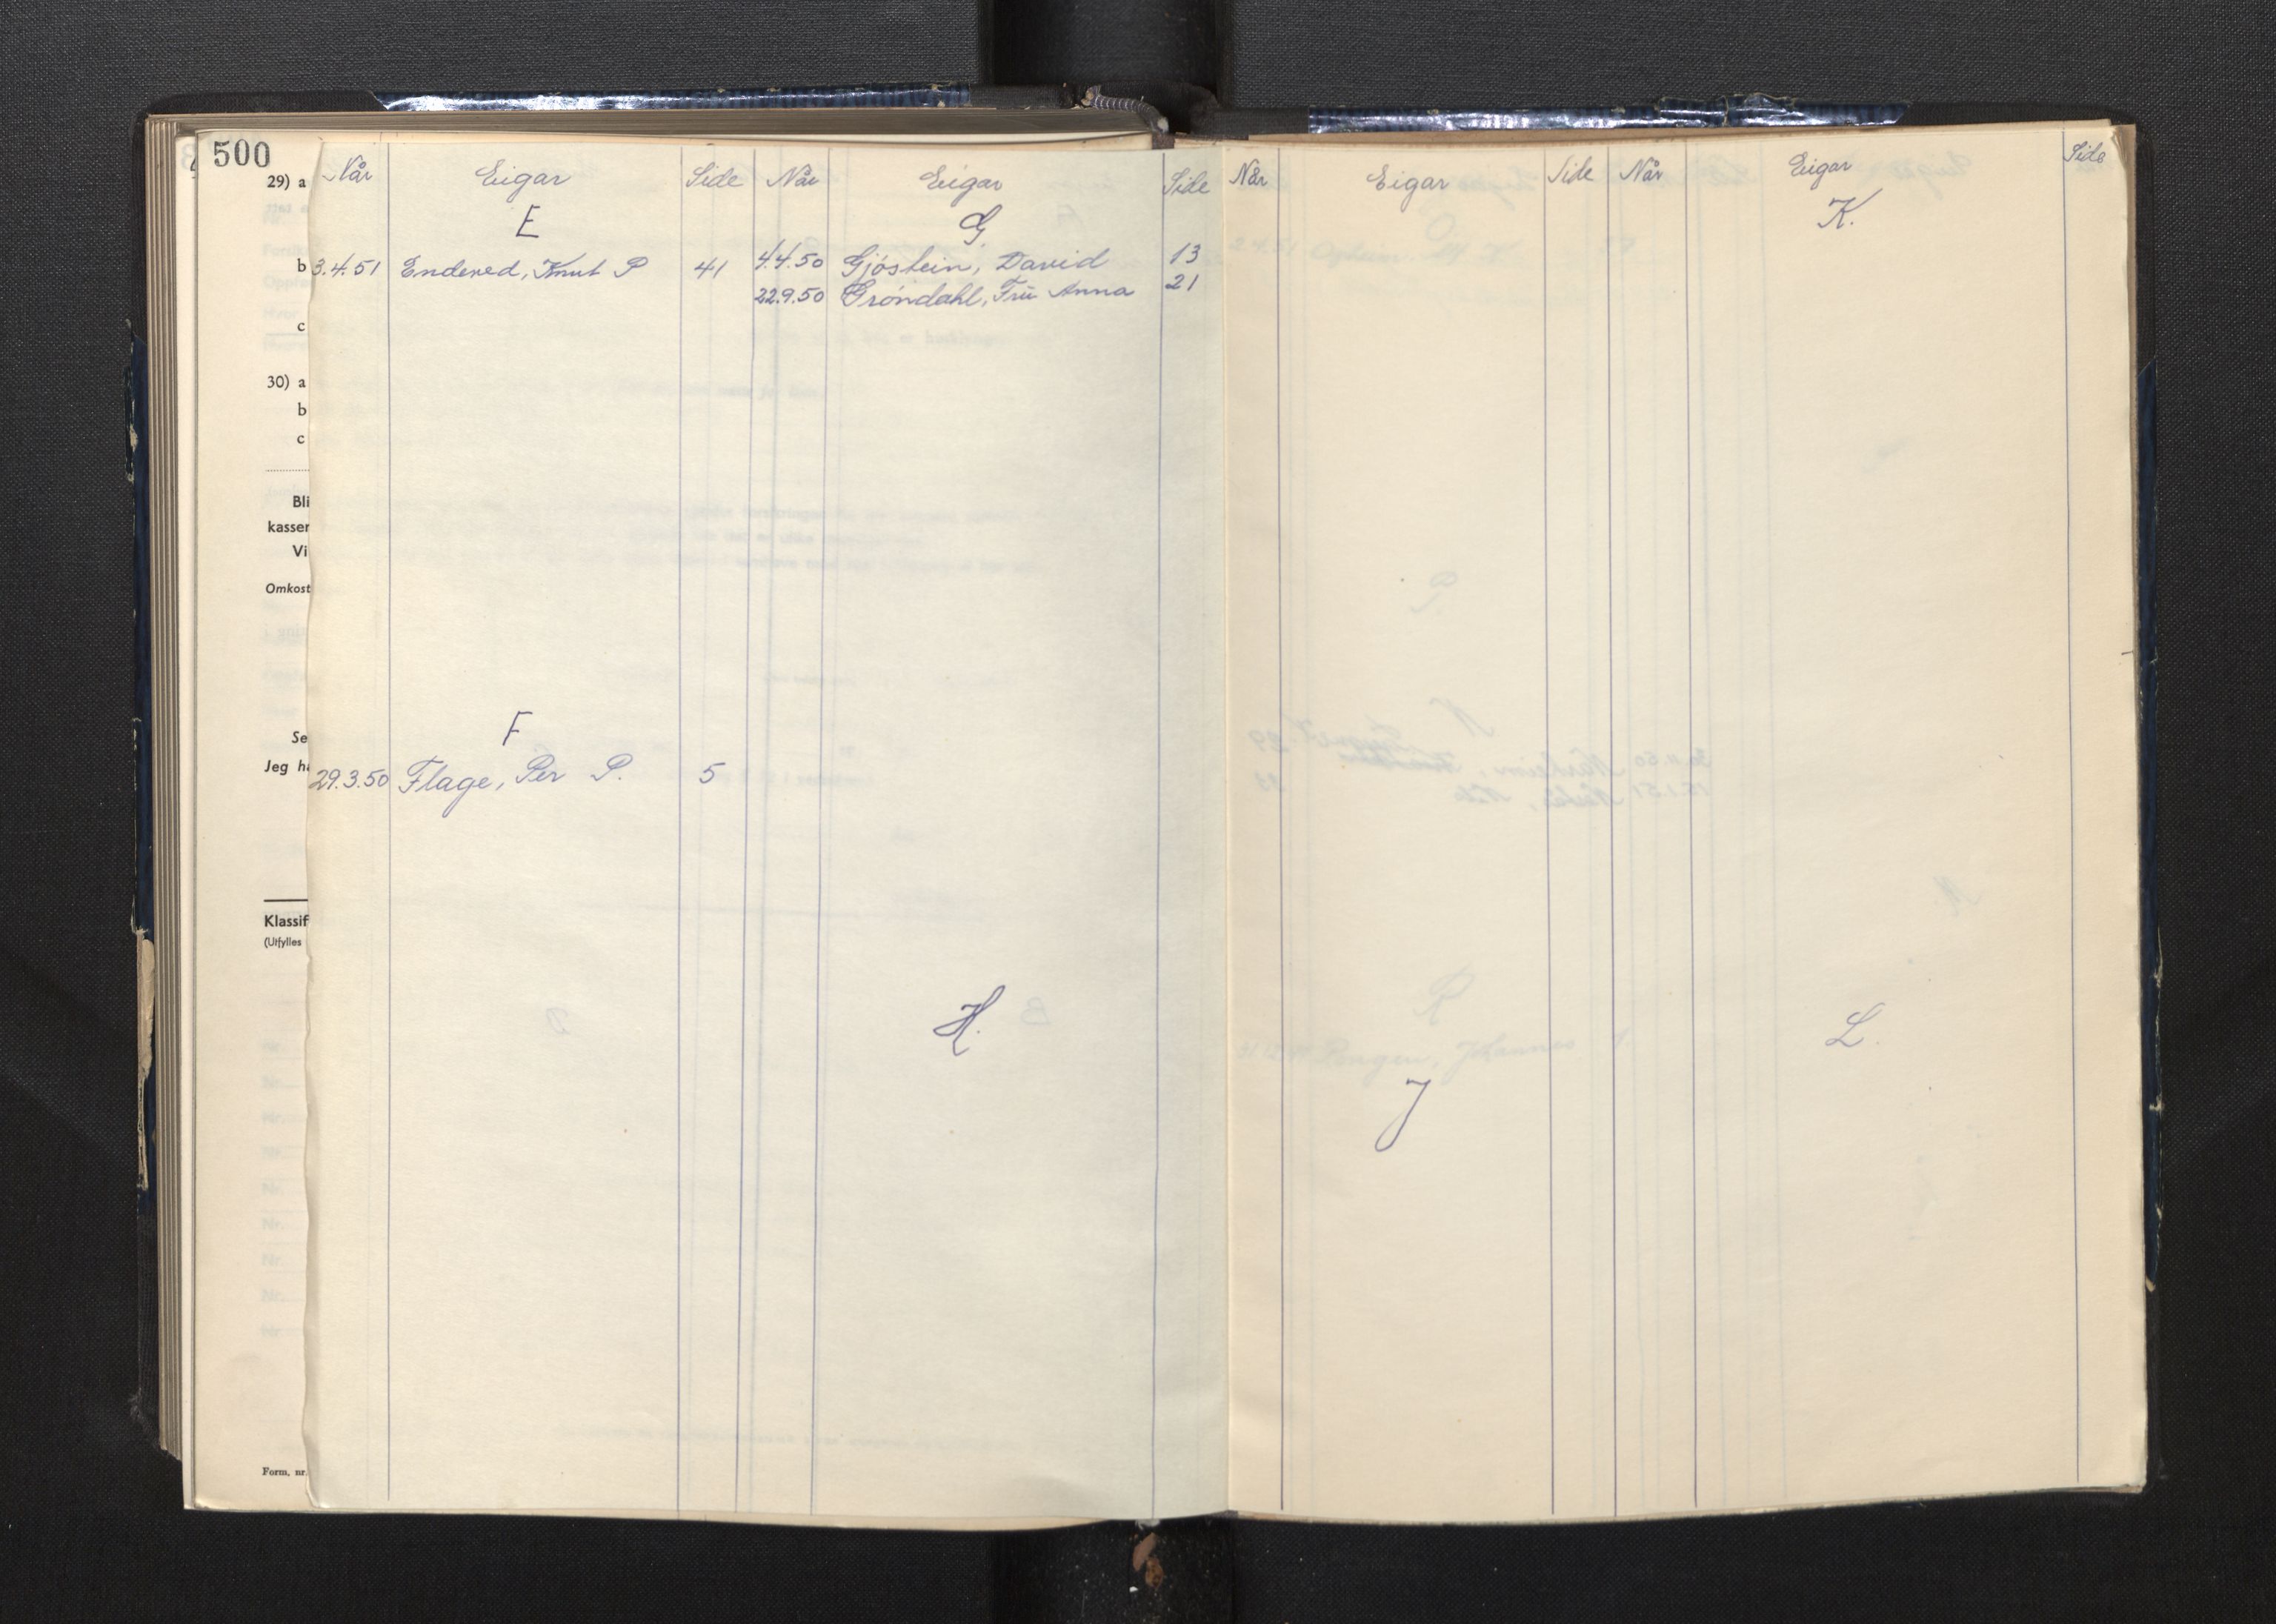 500
29) a
b
c
30) a
b
c
Bli
kasser
Vi
Omkost
Se
Jeg ha
Klassif
(Utfylles
Form. nr.
Når Eigar Side Når Eigar Side
E G.
3.4.51 Endered, Knut P 41
4.4.50 Gjøstein, David 13
22.9.50 Grøndahl, Fru Anna 21
F
29.3.50 Flage, Per P. 5
H.
Når Eigar Side Når Eigar Side
K.
J
L.